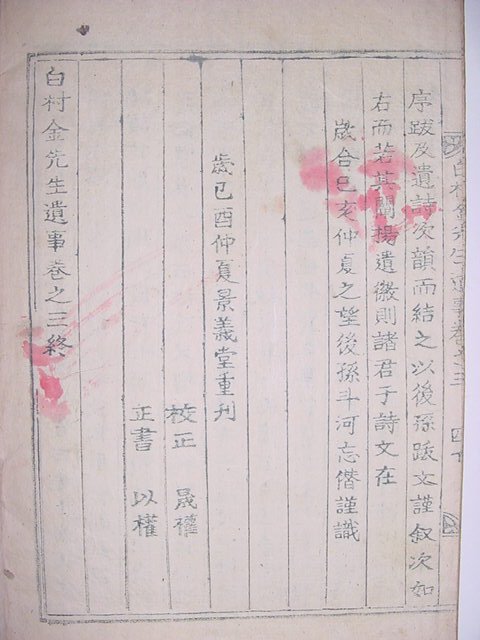 序跋及遺詩次韻而結之以後孫跋文謹叙次如
右而若其闡揚遺徽則諸君子詩文在
歲合已亥仲夏之望後孫斗河忘僭謹識
歲已酉仲夏景義堂重刋
校正 晟權
正書 以權
白村金先生遺事卷之三終
白村金先生遺事卷之三